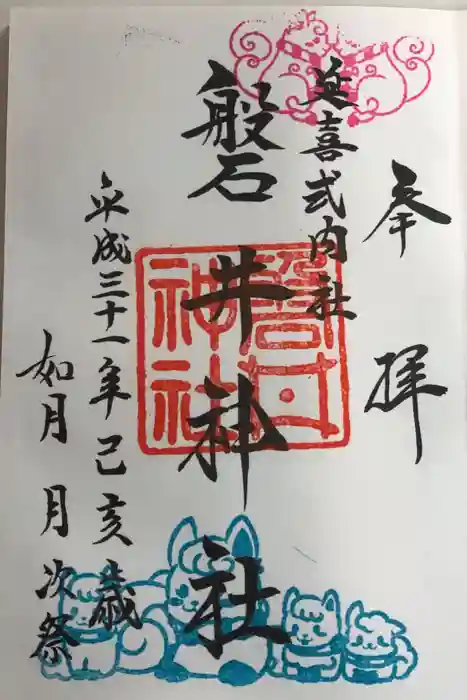 奉拝
延喜式内社
磐井神社
平成三十一年己亥歳
如月 月次祭
磐井神社